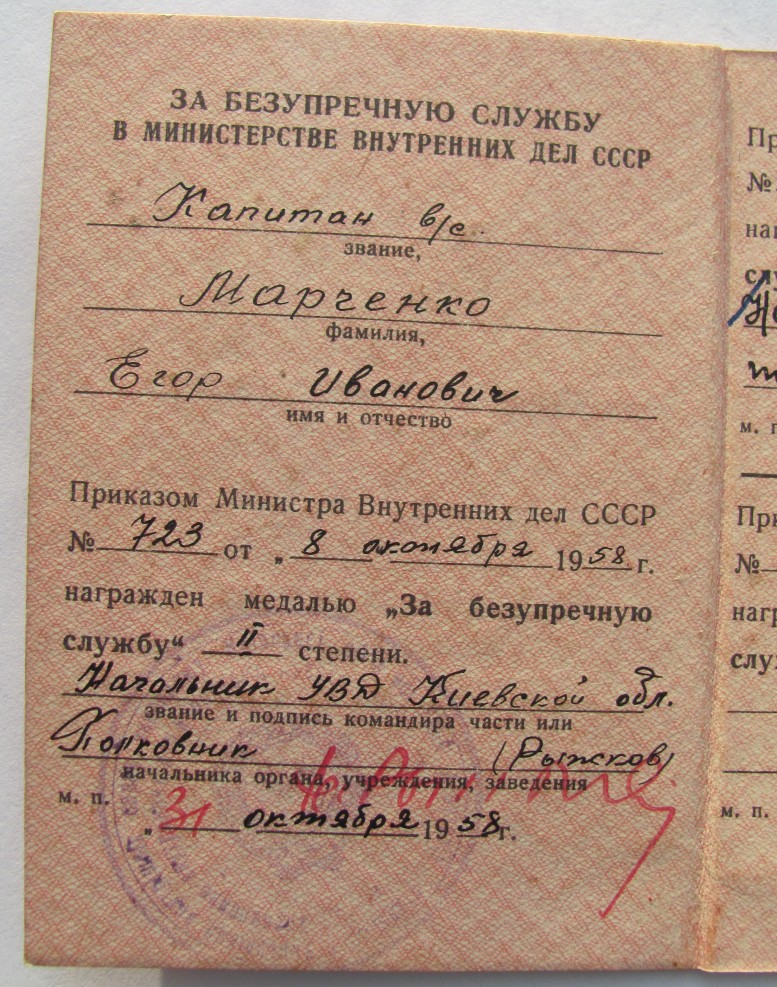 ЗА БЕЗУПРЕЧНУЮ СЛУЖБУ
В МИНИСТЕРСТВЕ ВНУТРЕННИХ ДЕЛ СССР
Капитан в/с.
звание,
Марченко
фамилия,
Егор Иванович
имя и отчество
Приказом Министра Внутренних дел СССР
№ 723 от „ 8 октября 1958 г.
награжден медалью „За безупречную
службу“ II степени.
Начальник УВД Киевской обл.
звание и подпись командира части или
Полковник (Рыжков)
начальника органа, учреждения, заведения
м. п.
„ 31 октября 1958 г.
№
№
м. п.